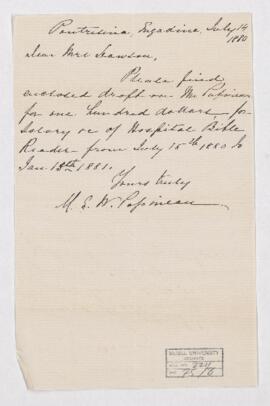 Pontresina, Engadine, July 14
1880
Dear Mrs Dawson,
Please find
enclosed draft on Mr Papineau
for one hundred dollars, for
salary &c of Hospital Bible
Reader from July 15th 1880 to
Jan 15th 1881.
Yours truly
M. E. W. Papineau
McGILL UNIVERSITY
ARCHIVES
ACC. NO. 2211
REF.